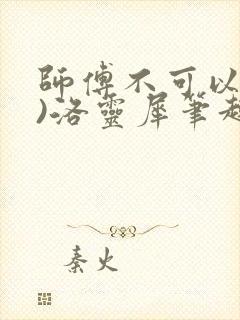 師傅不可以
)洛靈犀筆趣
秦火